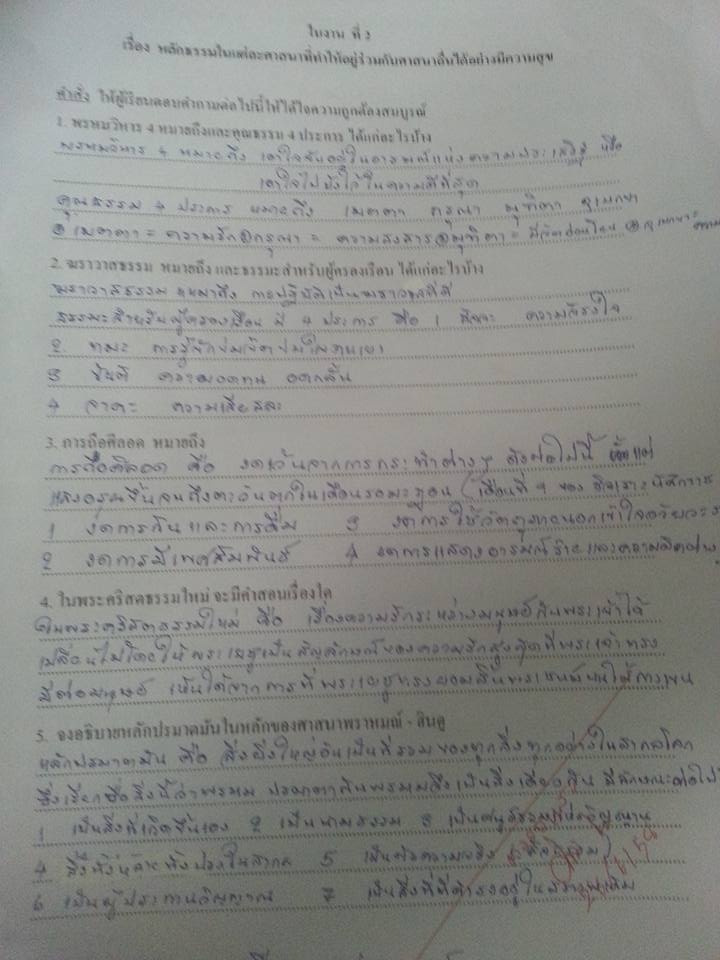 ใบงาน ที่ 2
เรื่อง หลักธรรมในแต่ละศาสนาที่ทำให้อยู่ร่วมกับศาสนาอื่นได้อย่างมีความสุข
คำสั่ง ให้ผู้เรียนตอบคำถามต่อไปนี้ให้ได้ใจความถูกต้องสมบูรณ์
1. พรหมวิหาร 4 หมายถึงและคุณธรรม 4 ประการ ได้แก่อะไรบ้าง
พรหมวิหาร 4 หมายถึง เอาใจ
เอาใจ ไว้ในความดีที่สุด
คุณธรรม 4 ประการ หมายถึง เมตตา กรุณา มุทิตา อุเบกขา
เมตตา = ความรัก กรุณา = ความสงสาร มุทิตา =
2. ฆราวาสธรรม หมายถึง และธรรมะสำหรับผู้ครองเรือน ได้แก่อะไรบ้าง
ฆราวาสธรรม หมายถึง การปฏิบัติเป็นฆราวาสที่ดี
ธรรมะสำหรับผู้ครองเรือน มี 4 ประการ คือ 1 สัจจะ ความจริงใจ
2 ทมะ การรู้จักข่มจิตข่มใจตนเอง
3 ขันติ ความอดทน อดกลั้น
4 จาคะ ความเสียสละ
3. การถือศีลอด หมายถึง
การถือศีลอด คือ งดเว้นจากการกระทำต่างๆ ดังต่อไปนี้ ตั้งแต่
แสงอรุณขึ้นจนถึงตะวันตกในเดือนรอมะฎอน (เดือนที่ 9 ของ
1 งดการกินและการดื่ม 3 งดการใช้วัตถุภายนอกเข้าไปในอวัยวะ
2 งดการมีเพศสัมพันธ์ 4 งดการแสดงอารมณ์ร้ายและความผิดต่างๆ
4. ในพระคริสตธรรมใหม่ จะมีคำสอนเรื่องใด
ในพระคริสตธรรมใหม่ คือ เรื่องความรักระหว่างมนุษย์กับพระเจ้าได้
เปลี่ยนไปโดยให้พระเยซูเป็นสัญลักษณ์ของความรักสูงสุดที่พระเจ้าทรง
มีต่อมนุษย์ เห็นได้จากการที่พระเยซูทรงยอมสิ้นพระชนม์บนไม้กางเขน
5. จงอธิบายหลักปรมาตมันในหลักของศาสนาพราหมณ์ - ฮินดู
หลักปรมาตมัน คือ สิ่งยิ่งใหญ่อันเป็นที่รวมของทุกสิ่งทุกอย่างในสากลโลก
ซึ่งเรียกชื่อสิ่งนี้ว่าพรหม ปรมาตมันกับพรหมจึงเป็นสิ่งเดียวกัน มีลักษณะต่อไป
1 เป็นสิ่งที่เกิดขึ้นเอง 2 เป็นนามธรรม 3
4 สิ่งทั้งหลายทั้งปวงในสากล 5 เป็นตัวความจริง
6 เป็นผู้ประทานวิญญาณ 7 เป็นสิ่งที่ดำรงอยู่ใน